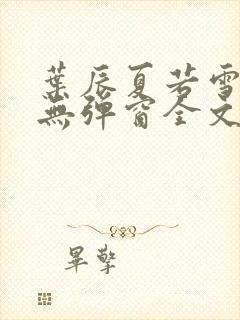 葉辰夏若雪
無彈窗全文
畢擎